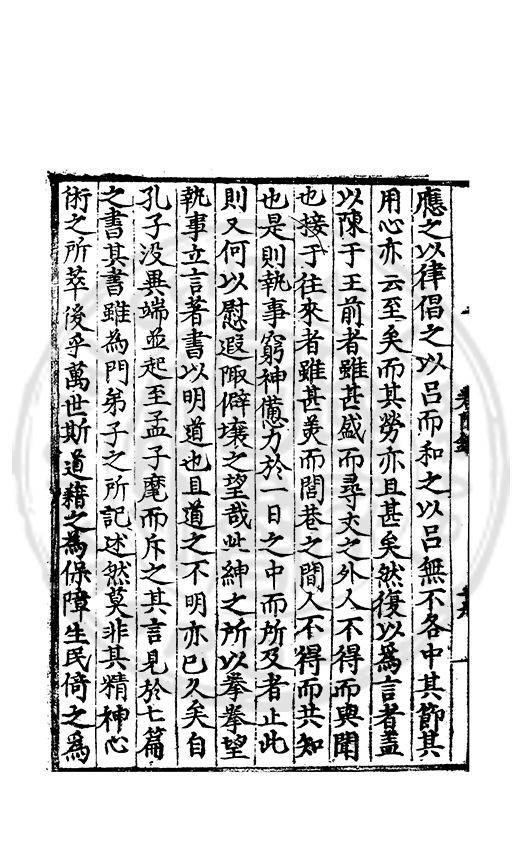 應之以律倡之以吕而和之以吕無不各中其節其
用心亦云至矣而其勞亦且甚矣然復以為言者盖
以陳于王前者雖甚盛而尋丈之外人不得而與聞
也接于往來者雖甚美而閭巷之間人不得而共知
也是則執事窮神憊力於一日之中而所及者止此
則又何以慰遐陬僻壤之望哉此紳之所以拳拳望
執事立言著書以明道也且道之不明亦已久矣自
孔子没異端並起至孟子麾而斥之其言見於七篇
之書其書雖為門弟子之所記述然莫非其精神心
術之所萃後乎萬世斯道藉之為保障生民倚之為